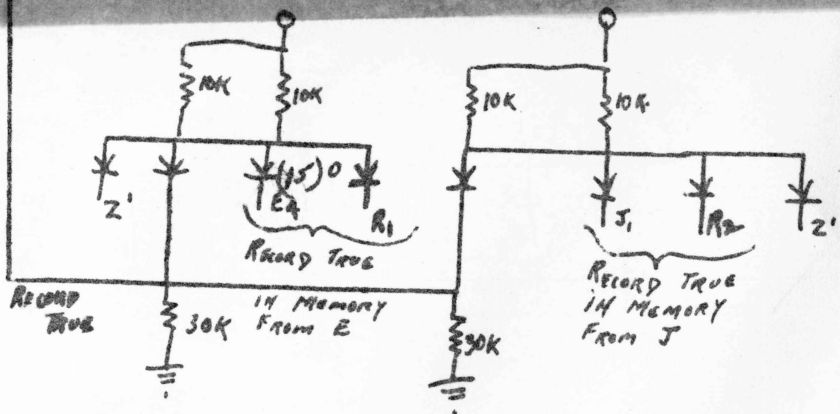 10K
10K
10K
10K
Z'
E4
R1
RECORD TRUE
IN MEMORY
FROM E
J1
R2
Z'
RECORD TRUE
IN MEMORY
FROM J
RECORD
TRUE
30K
30K